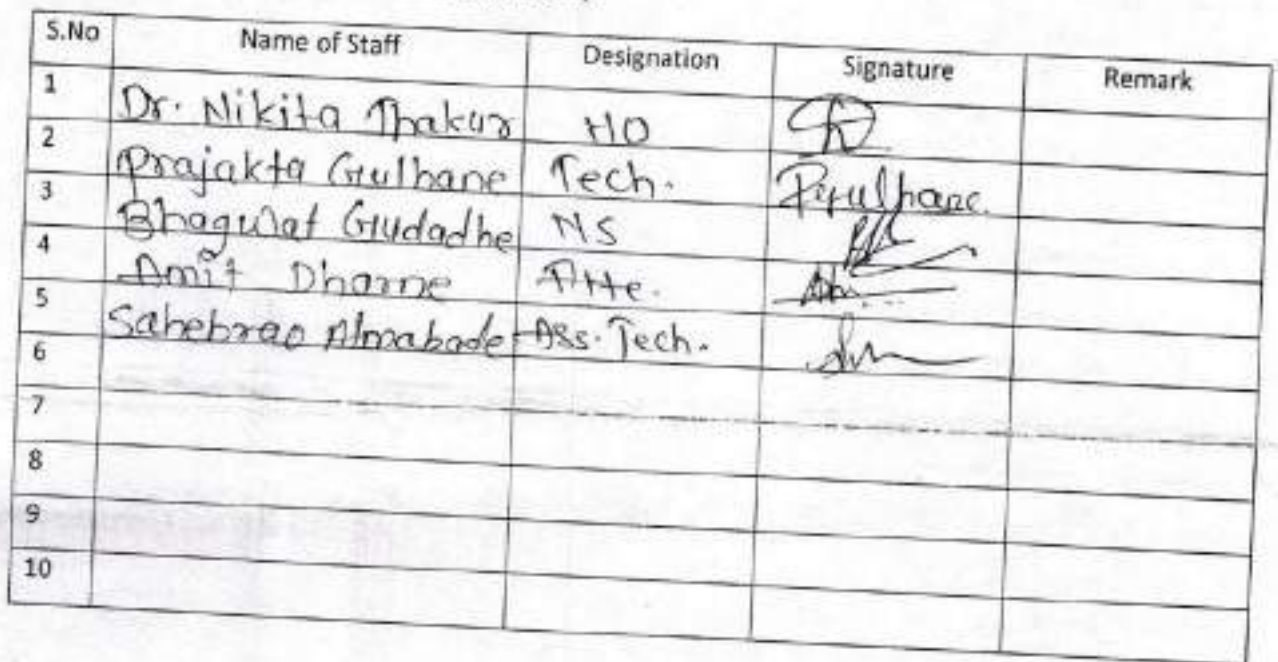 S.No Name of Staff Designation Signature Remark
1 Dr. Nikita Thakur HO
2 Prajakta Gulhane Tech. P.Gulhane
3 Bhagwat Gudadhe NS
4 Amit Dharne Atte.
5 Sahebrao Almabade Ass. Tech.
6
7
8
9
10